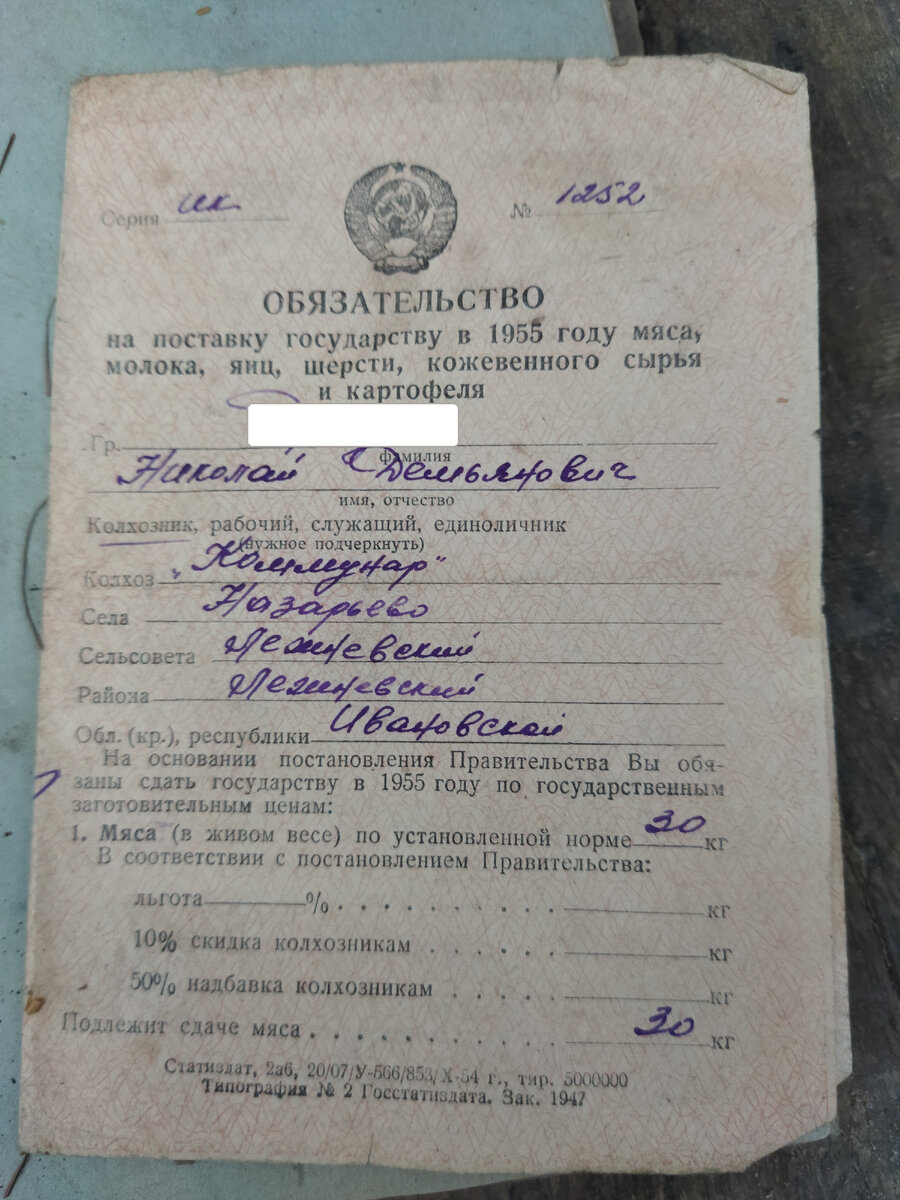 Серия ик № 1252
ОБЯЗАТЕЛЬСТВО
на поставку государству в 1955 году мяса,
молока, яиц, шерсти, кожевенного сырья
и картофеля
Гр.
фамилия
Николай Демьянович
имя, отчество
Колхозник, рабочий, служащий, единоличник
(нужное подчеркнуть)
Колхоз „Коммунар"
Села Назарьево
Сельсовета Лежневский
Района Лежневский
Обл. (кр.), республики Ивановской
На основании постановления Правительства Вы обя-
заны сдать государству в 1955 году по государственным
заготовительным ценам:
1. Мяса (в живом весе) по установленной норме 30 кг
В соответствии с постановлением Правительства:
льгота % . . . . . . . . . . кг
10% скидка колхозникам . . . . . . кг
50% надбавка колхозникам . . . . . кг
Подлежит сдаче мяса . . . . . . . . . . . 30 кг
Статиздат, 2аб, 20/07/У-566/853/Х-54 г., тир. 5000000
Типография № 2 Госстатиздата. Зак. 1947